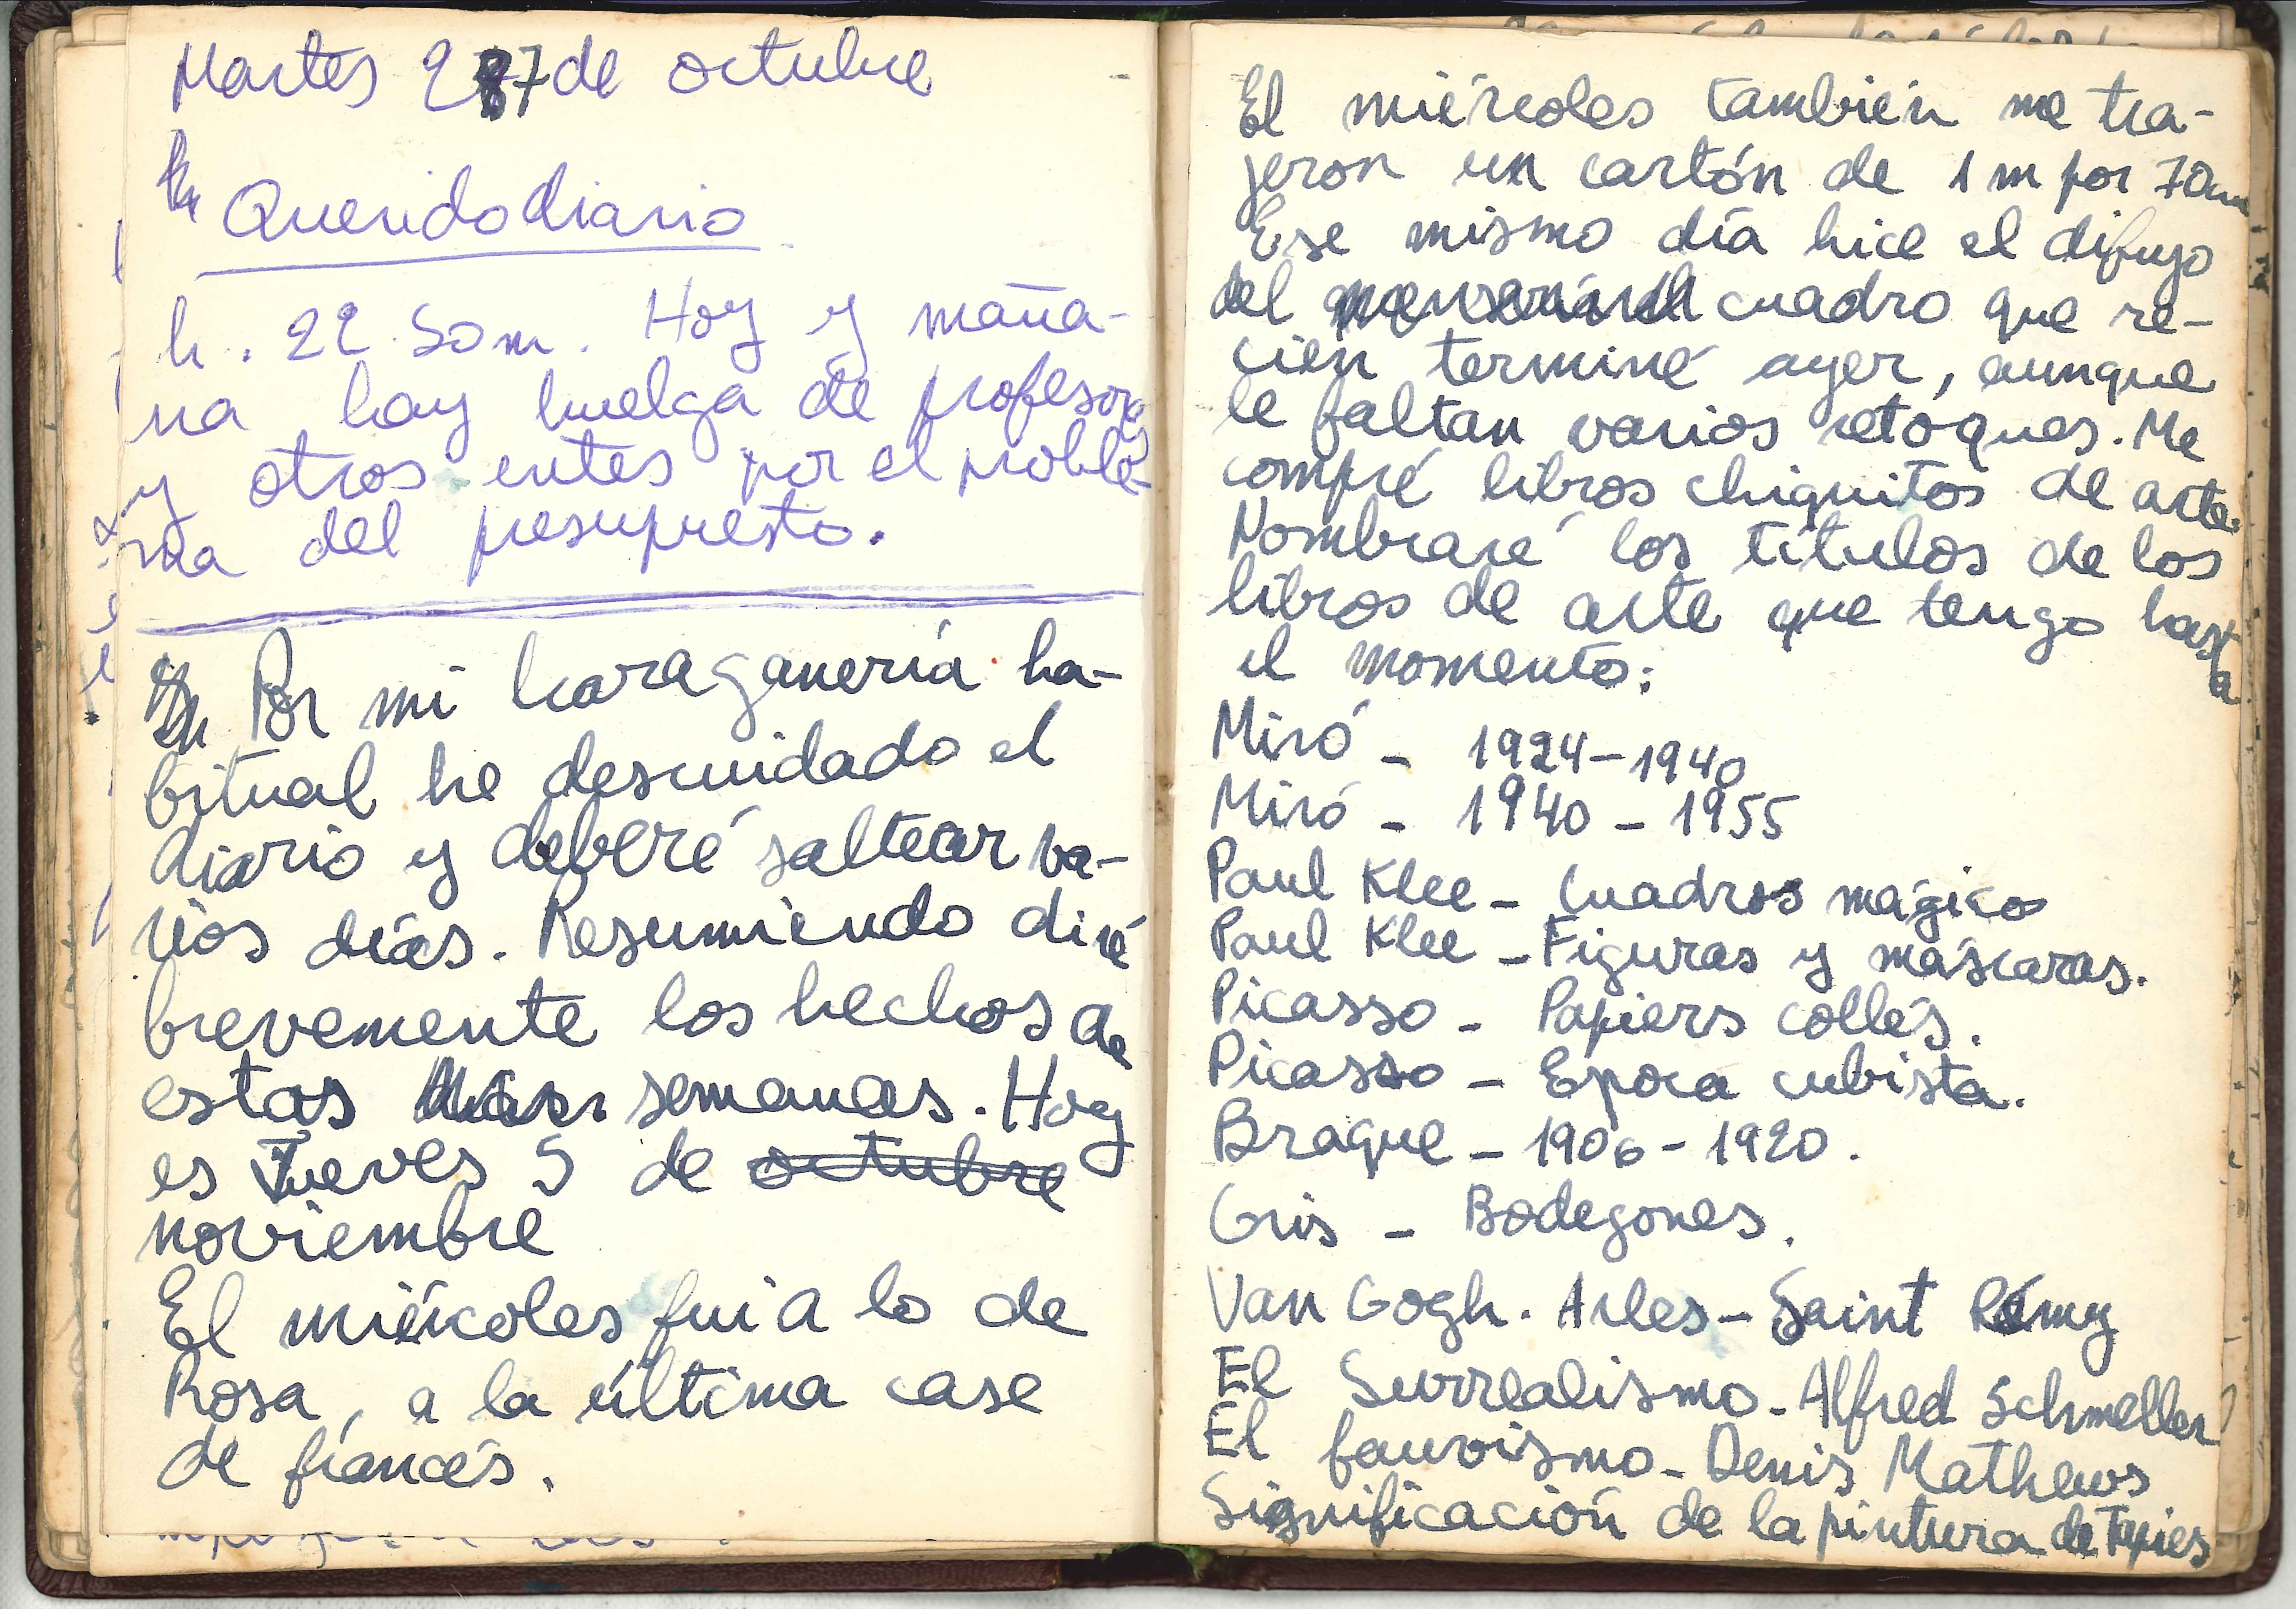 Martes 27 de octubre
Querido diario
h. 22. 50 m. Hoy y maña-
na hay huelga de profesores
y otros entes por el proble-
ma del presupresto.
Por mi haraganería ha-
bitual he descuidado el
diario y deberé saltear va-
rios días. Resumiendo diré
brevemente los hechos de
estas semanas. Hoy
es Jueves 5 de octubre
noviembre
El miércoles fui a lo de
Rosa, a la última case
de francés.
El miércoles también me tra-
jeron un cartón de 1 m por 70cm
Ese mismo día hice el difujo
del cuadro que re-
cién terminé ayer, aunque
le faltan varios retóques. Me
compré libros chiquitos de arte.
Nombraré los títulos de los
libros de arte que tengo hasta
el momento:
Miró - 1924-1940
Miró - 1940 - 1955
Paul Klee - Cuadros mágicos
Paul Klee - Figuras y máscaras.
Picasso - Papiers collés.
Picasso - Epoca cubista.
Braque - 1906 - 1920.
Gris - Bodegones.
Van Gogh. Arles - Saint Rémy
El Surrealismo - Alfred Schmeller
El fauvismo - Denis Mathews
Significación de la pintura de Tapies